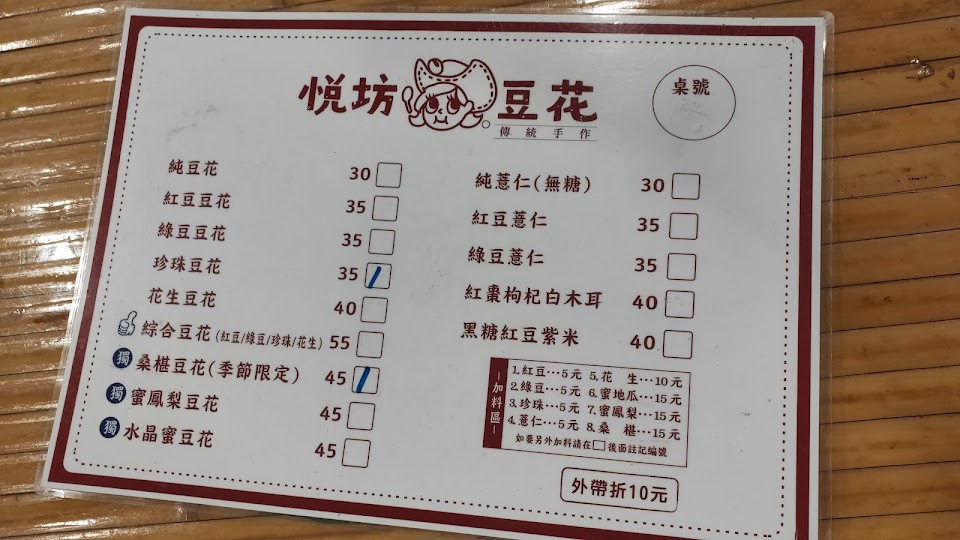 悦坊豆花
傳統手作
桌號
純豆花 30
紅豆豆花 35
綠豆豆花 35
珍珠豆花 35
花生豆花 40
綜合豆花(紅豆/綠豆/珍珠/花生) 55
獨 桑椹豆花(季節限定) 45
獨 蜜鳳梨豆花 45
獨 水晶蜜豆花 45
純薏仁(無糖) 30
紅豆薏仁 35
綠豆薏仁 35
紅棗枸杞白木耳 40
黑糖紅豆紫米 40
－加料區－
1.紅豆…5元 5.花 生…10元
2.綠豆…5元 6.蜜地瓜…15元
3.珍珠…5元 7.蜜鳳梨…15元
4.薏仁…5元 8.桑 椹…15元
如要另外加料請在□後面註記編號
外帶折10元